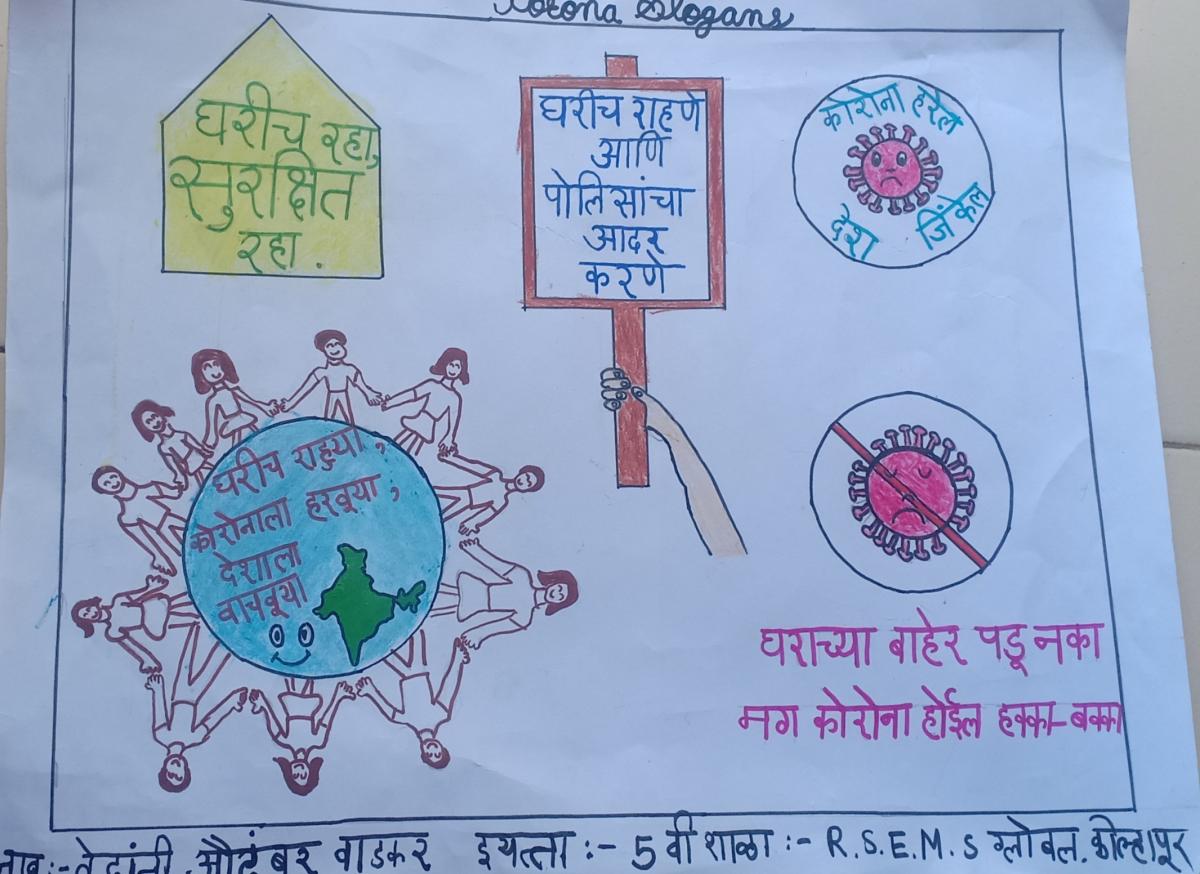 Corona Slogans
घरीच रहा,
सुरक्षित
रहा.
घरीच राहणे
आणि
पोलिसांचा
आदर
करणे
कोरोना हरेल
देश जिंकेल
घरीच राहुया,
कोरोनाला हरवूया,
देशाला
वाचवूया
घराच्या बाहेर पडू नका
मग कोरोना होईल हक्का-बक्का
नाव:- वेदांती औदुंबर वाडकर इयत्ता :- 5 वी शाळा :- R.S.E.M.S ग्लोबल. कोल्हापूर